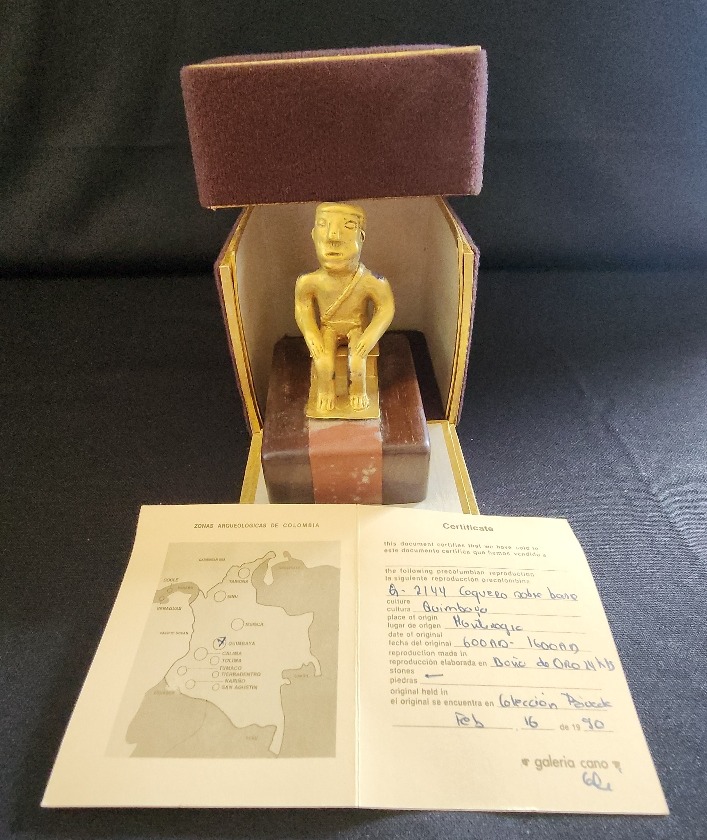 ZONAS ARQUEOLOGICAS DE COLOMBIA
COCLE
VERAGUAS
TAIRONA
SINU
MUISCA
QUIMBAYA
CALIMA
TOLIMA
TUMACO
TIERRADENTRO
NARIÑO
SAN AGUSTIN
Certificate
this document certifies that we have sold to
este documento certifica que hemos vendido a
the following precolumbian reproduction
la siguiente reproducción precolombina
2144 Coquero sobre base
culture
cultura Quimbaya
place of origin
lugar de origen
date of original
fecha del original 600AD - 1600AD
reproduction made in
reproducción elaborada en Baño de ORO 24 Kts
stones
piedras —
original held in
el original se encuentra en Colección Privada
Feb 16 de 19 90
galeria cano